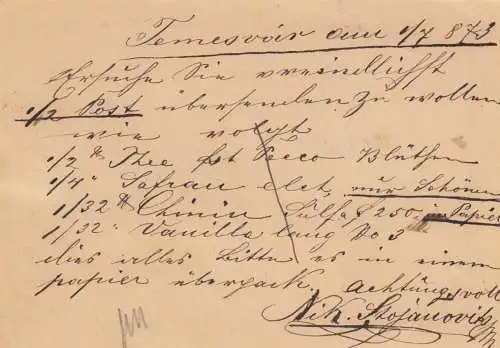 Temesvár am 1/7 873
Ersuche Sie vreindlichst
1/2 Post übersenden zu wollen
wie volgt
1/2 ℔ Thee fst Pecco Blüthen
1/4 " Safran elct, nur Schönen
1/32 ℔ Chinin Sulfa 250 in Papier
1/32 " Vanille lang No 3
dies alles Bitte es in einem
papier überpack. Achtungsvoll
Nik. Stojanovits